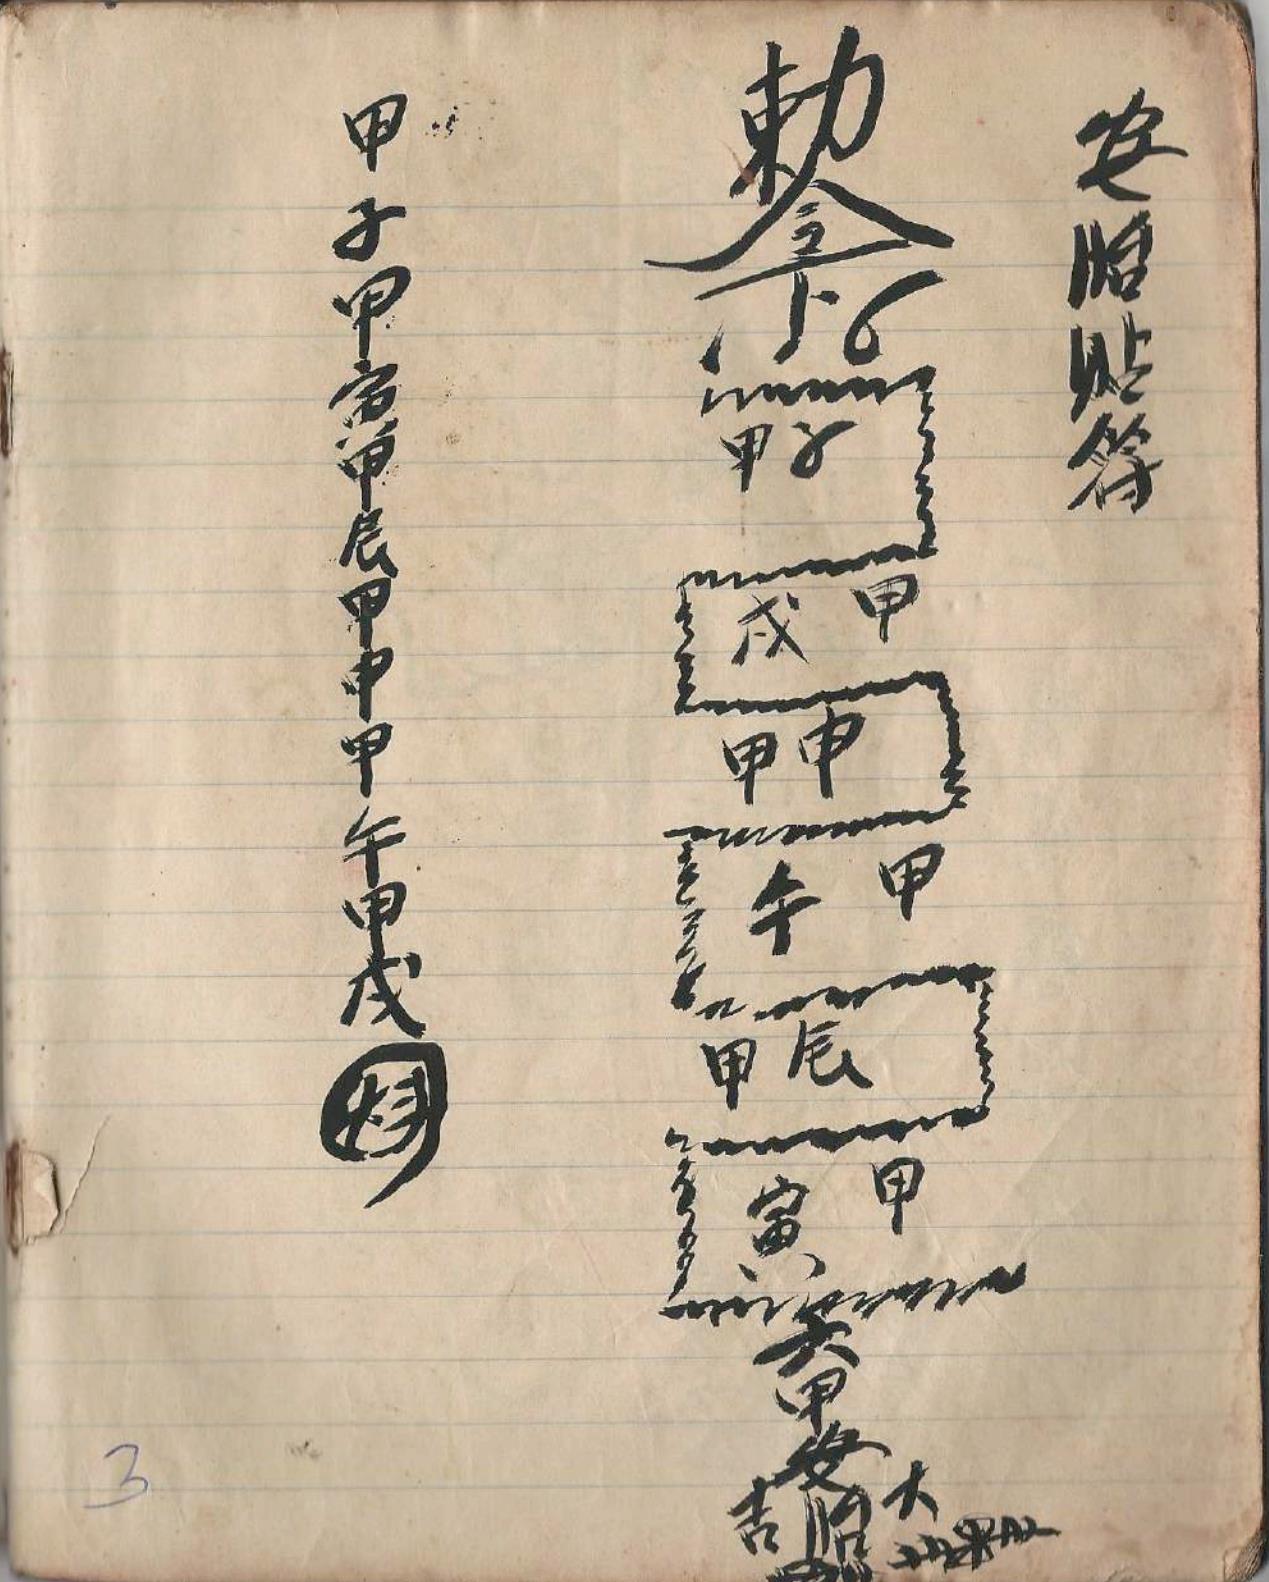 安胎貼符
勅令
甲子
甲戌
甲申
甲午
甲辰
甲寅
六甲安胎
大吉
甲子甲寅甲辰甲申甲午甲戌
3